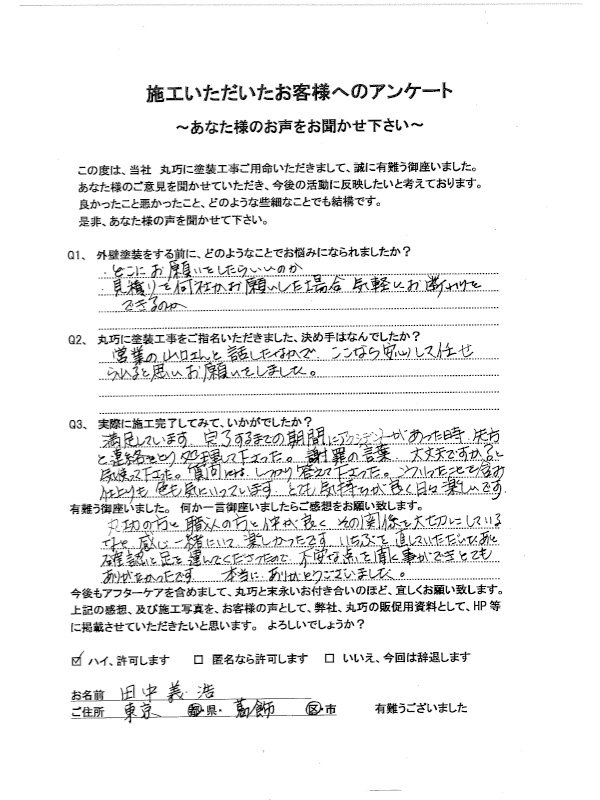 施工いただいたお客様へのアンケート
～あなた様のお声をお聞かせ下さい～
この度は、当社　丸巧に塗装工事ご用命いただきまして、誠に有難う御座いました。
あなた様のご意見を聞かせていただき、今後の活動に反映したいと考えております。
良かったこと悪かったこと、どのような些細なことでも結構です。
是非、あなた様の声を聞かせて下さい。
Q1、 外壁塗装をする前に、どのようなことでお悩みになられましたか？
・どこにお願いをしたらいいのか
・見積りを何社かお願いした場合 気軽にお断りを
できるのか
Q2、 丸巧に塗装工事をご指名いただきました、決め手はなんでしたか？
営業の山口さんと話したなかで、ここなら安心して任せ
られると思いお願いをしました。
Q3、 実際に施工完了してみて、いかがでしたか？
満足しています。完了するまでの期間にアクシデントがあった時、先方
と連絡をとり処理して下さった。謝罪の言葉、大丈夫ですかと
気使って下さった。質問には、しっかり答えて下さった。そういったことを含め
仕上りも色も気にいっています。とても気持ちが良く日々楽しいです。
有難う御座いました。 何か一言御座いましたらご感想をお願い致します。
丸巧の方と職人の方と仲が良く その関係を大切にしている
なと感じ一緒にいて楽しかったです。
確認に足を運んでくださったので、不安な点を聞く事ができとても
ありがたかったです　本当に ありがとうございました。
今後もアフターケアを含めまして、丸巧と末永いお付き合いのほど、宜しくお願い致します。
上記の感想、及び施工写真を、お客様の声として、弊社、丸巧の販促用資料として、HP 等
に掲載させていただきたいと思います。 よろしいでしょうか？
☑ ハイ、許可します　□ 匿名なら許可します　□ いいえ、今回は辞退します
お名前　田中義浩
ご住所　東京　都・県・葛飾　区・市　有難うございました